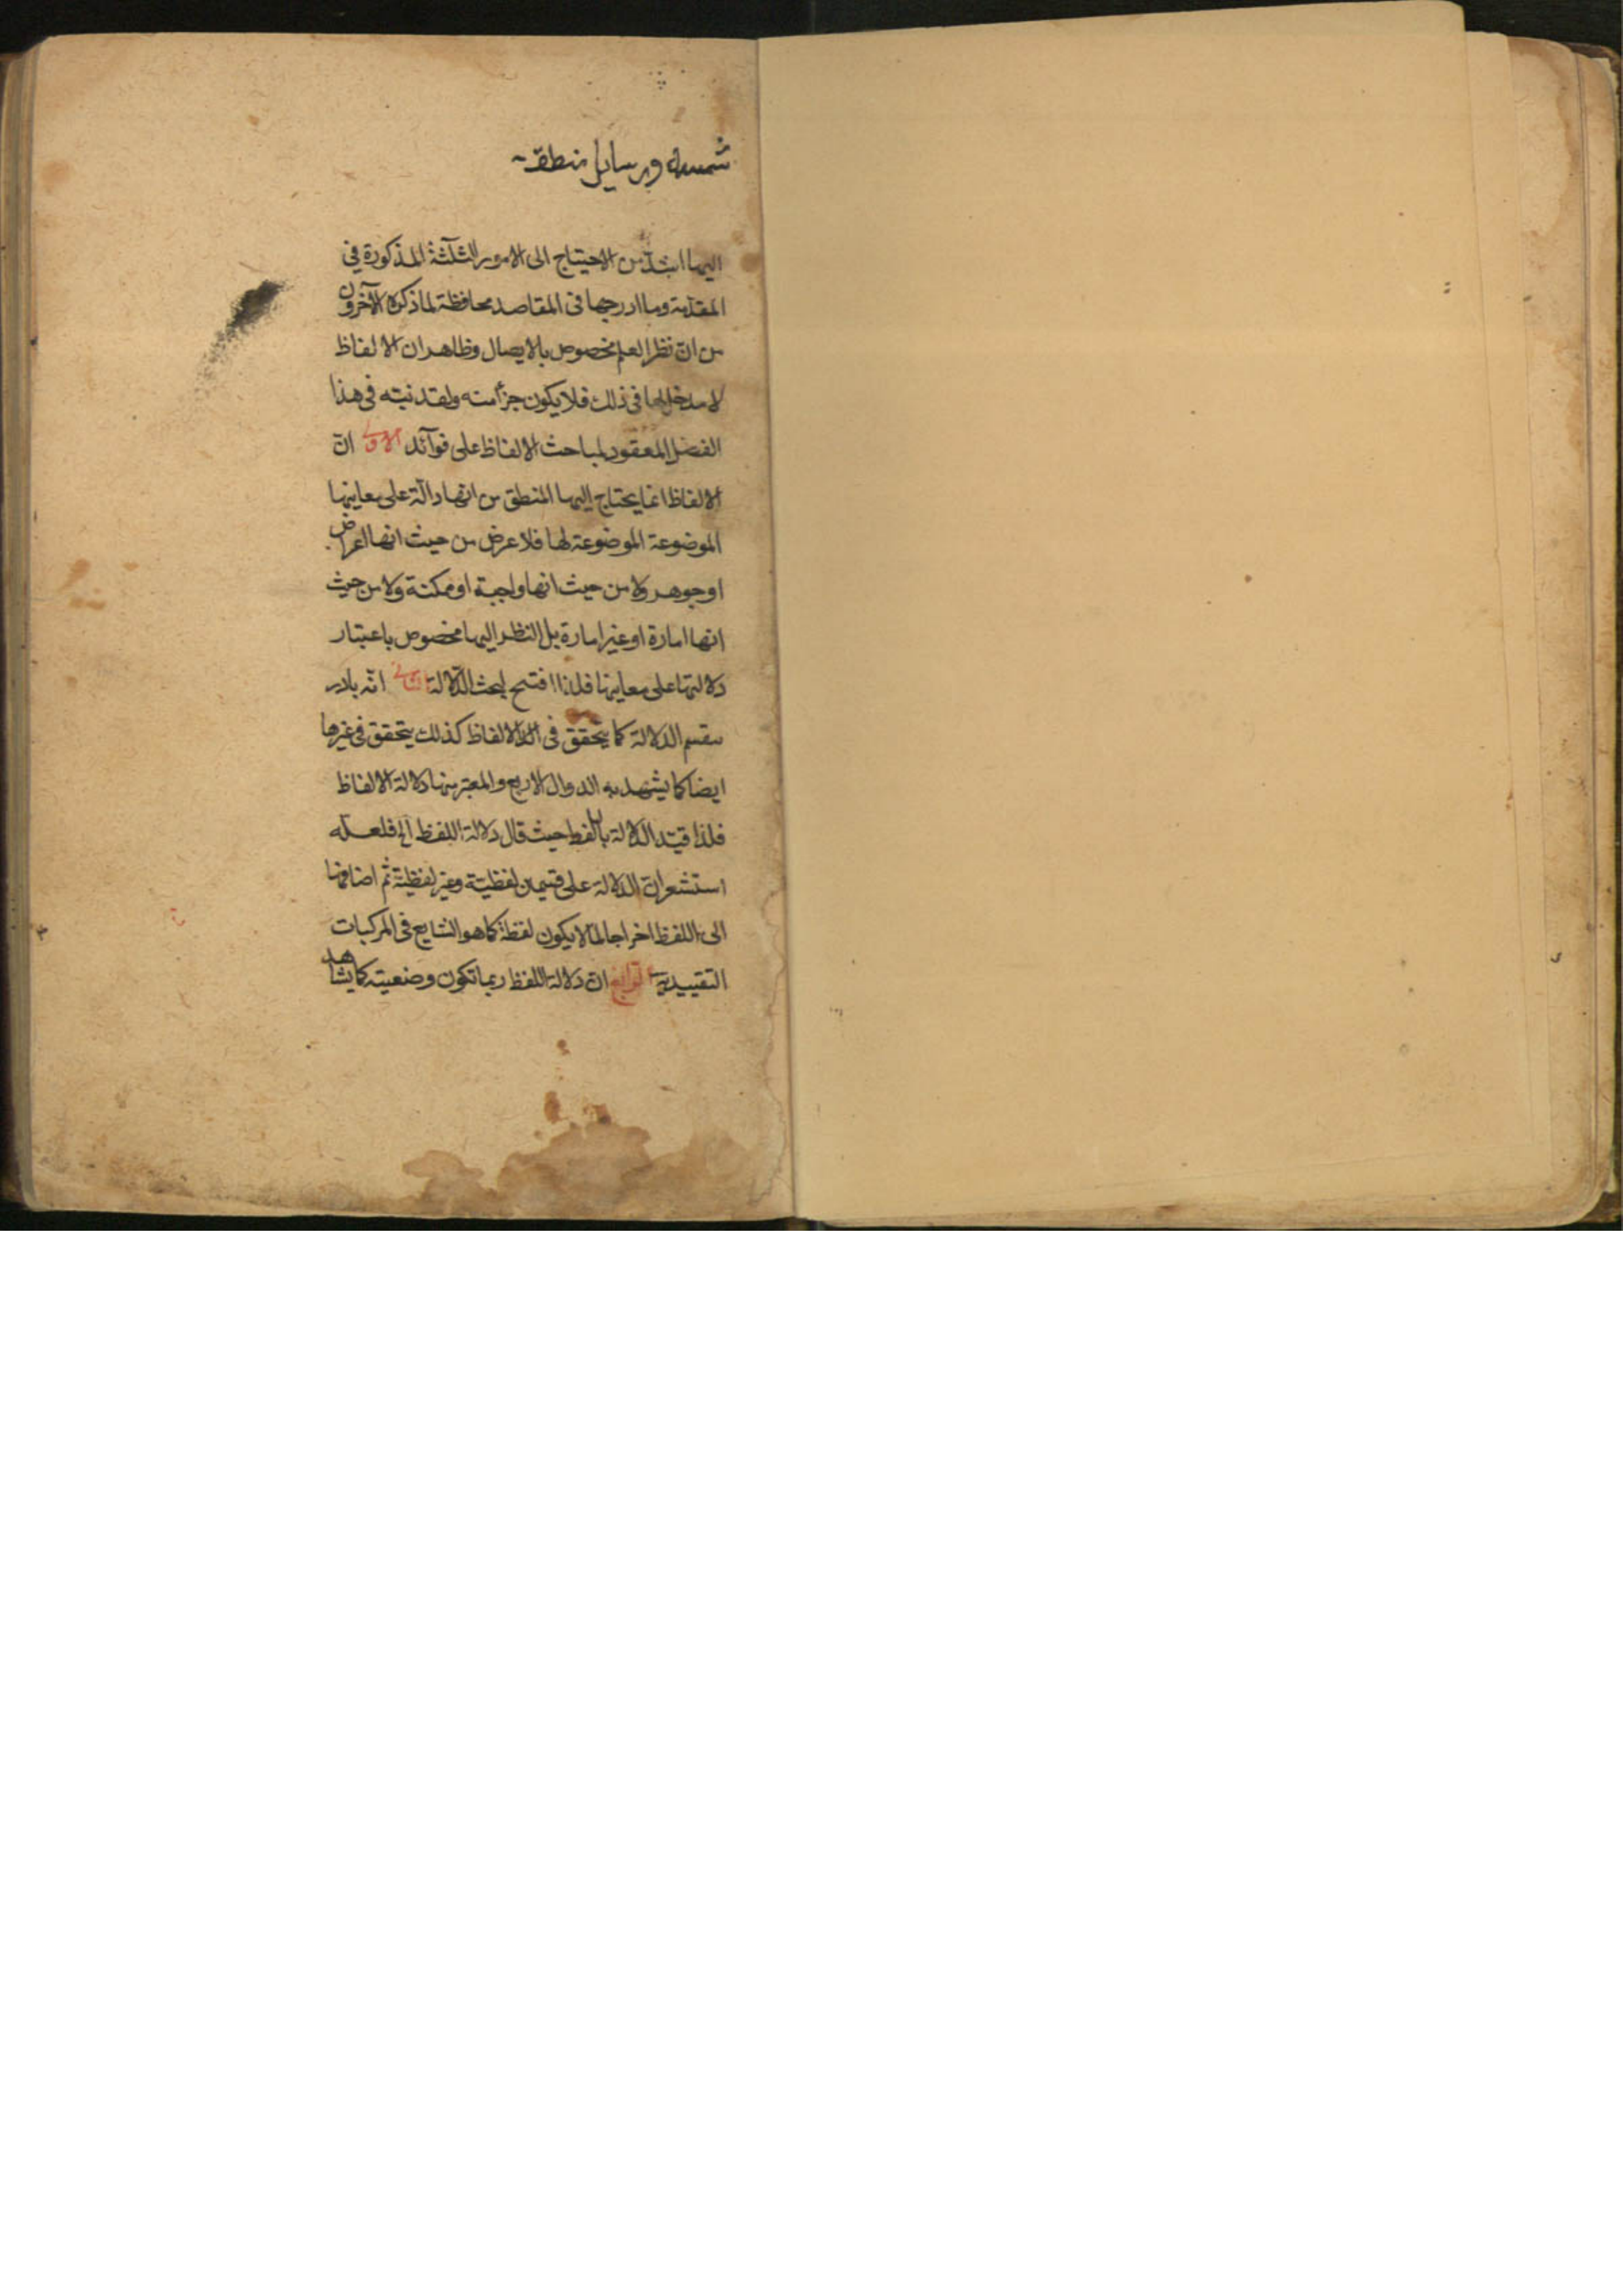 شمسيه ورسايل منطقـ
اليها اشد من الاحتياج الى الامور الثلثة المذكورة فى
المقدمة وما ادرجها فى المقاصد محافظة لما ذكره الآخرون
من ان نظر العلم مخصوص بالايصال وظاهر ان الالفاظ
لا مدخل لها فى ذلك فلا يكون جزأ منه ولقد نبّه فى هذا
الفصل المعقود لمباحث الالفاظ على فوائد الاولى انّ
الالفاظ انما يحتاج اليها المنطق من انها دالة على معاينها
الموضوعة الموضوعة لها فلا عرض من حيث انها اعراض
او جوهر ولا من حيث انها واجبة او ممكنة ولا من حيث
انها امارة او غير امارة بل النظر اليها مخصوص باعتبار
دلالتها على معاينها فلذا افتتح لبحث الدلالة الثانى انّه بادر
الدلالة كما يتحقق فى الالفاظ كذلك يتحقق فى غيرها
ايضا كما يشهد به الدوال الاربع والمعتبر منها دلالة الالفاظ
فلذا قيّد الدلالة باللفظ حيث قال دلالة اللفظ الخ فلعله
استشعر ان الدلالة على قسمين لفظيّة وغير لفظيّة ثم اضافها
الى اللفظ اخراجا لما لا يكون لفظة كما هو الشايع فى المركبات
التقييدية الرابع ان دلالة اللفظ ربما تكون وضعيته كما يشاهد